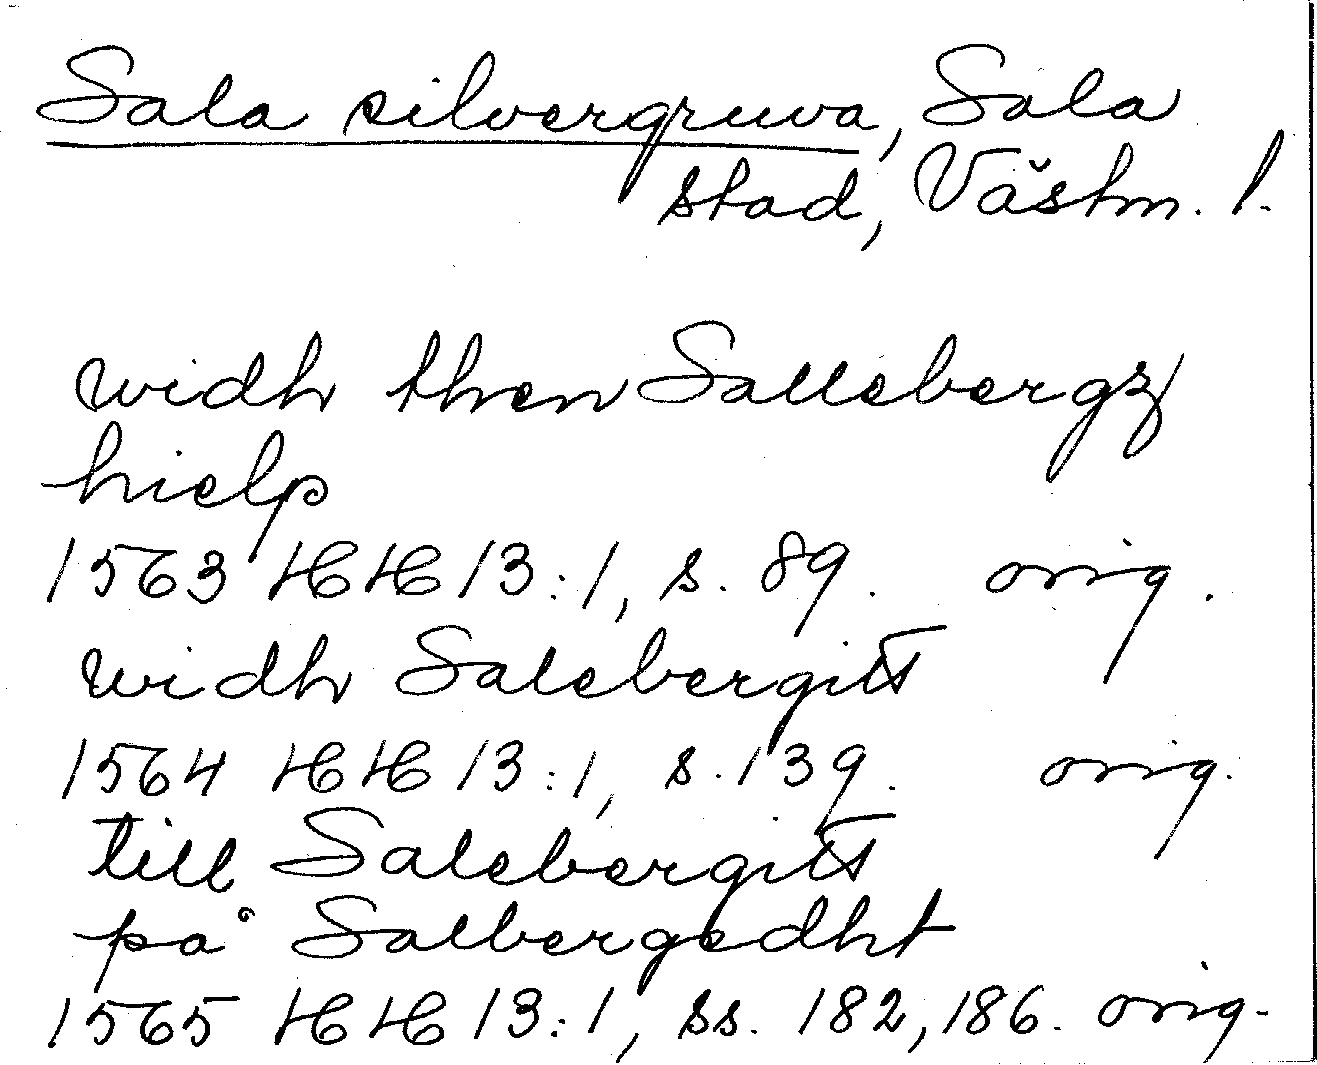 Sala silvergruva, Sala
stad, Västm. l.
widh then Sallebergz
hielp
1563 HH 13:1, s. 89. orig.
widh Salebergitt
1564 HH 13:1, s. 139. orig.
till Salebergitt
på Salbergedht
1565 HH 13:1, ss. 182, 186. orig.